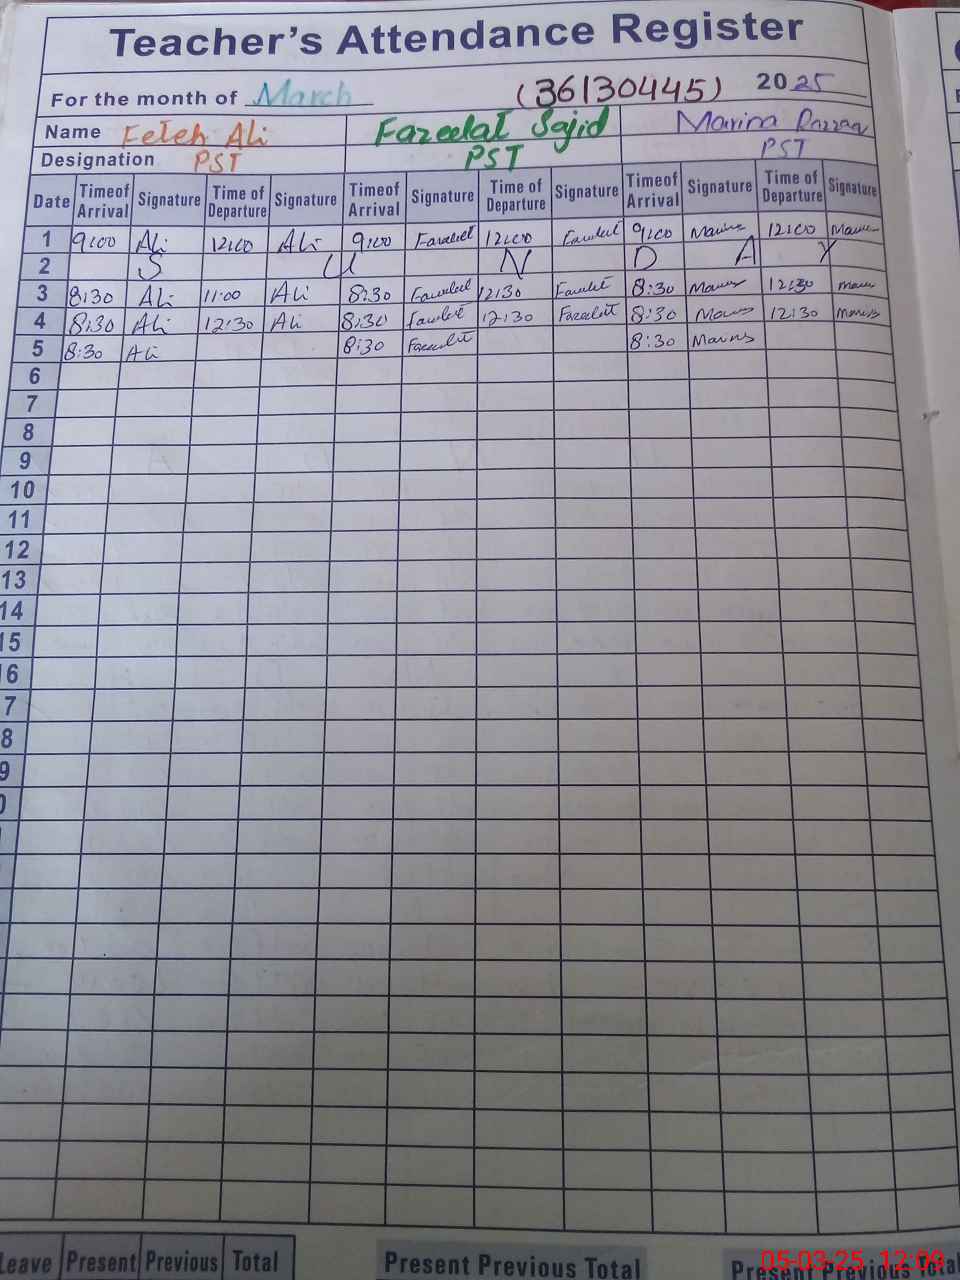 Teacher's Attendance Register
For the month of March (36130445) 2025
Name Feteh Ali Fazeelat Sajid Marina Razzaq
Designation PST PST PST
Date Timeof Arrival Signature Time of Departure Signature Timeof Arrival Signature Time of Departure Signature Timeof Arrival Signature Time of Departure Signature
1 9:00 Ali 12:00 Ali 9:00 12:00 9:00 12:00
2 S U N D A Y
3 8:30 Ali 11:00 Ali 8:30 12:30 8:30 12:30
4 8:30 Ali 12:30 Ali 8:30 12:30 8:30 12:30
5 8:30 Ali 8:30 8:30
6
7
8
9
10
11
12
13
14
15
6
7
8
9
Leave Present Previous Total Present Previous Total Present Previous Total
05-03-25 12:09